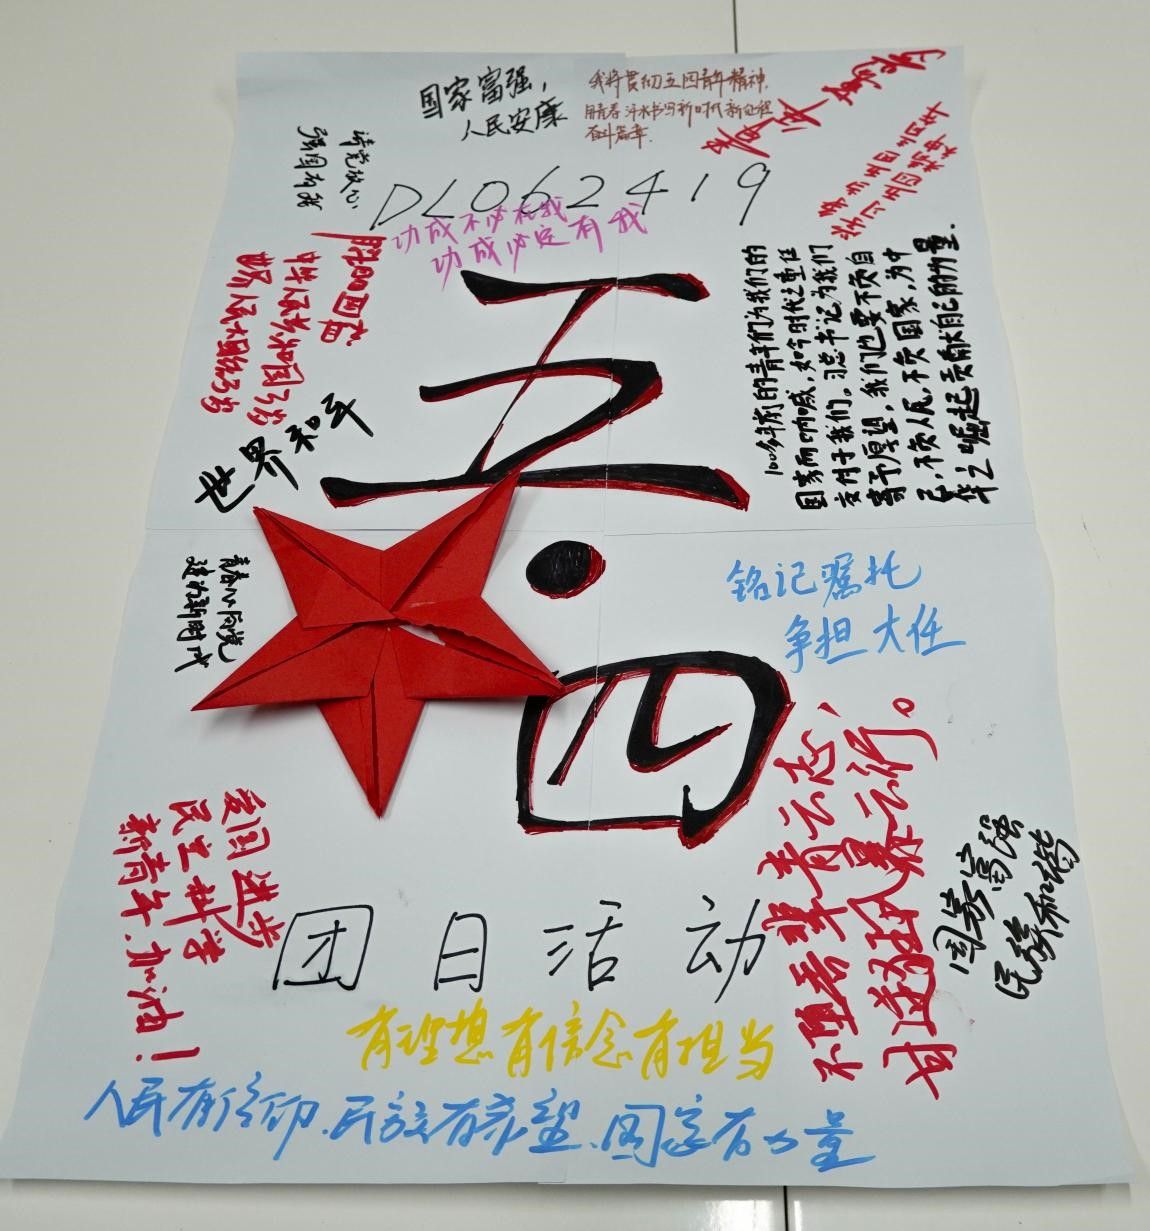 国家富强，
人民安康
我将贯彻五四青年精神，
用青春汗水书写新时代新征程
奋斗篇章.
请党放心
强国有我
DL062419
功成不必在我
功成必定有我
世界和平
五·四
100多年前的青年们为我们的
国家而呐喊，如今时代之重任
交付于我们。习总书记为我们
寄予厚望，我们也要不负自
己，不负人民，不负国家，为中
华之崛起贡献自己的力量.
青春心向党
建功新时代
铭记嘱托
争担大任
不堕吾辈青云志，
甘逆狂风暴云行。
爱国进步
民主科学
新青年，加油！
国家富强
民族和谐
团日活动
有理想有信念有担当
人民有信仰.民族有希望、国家有力量